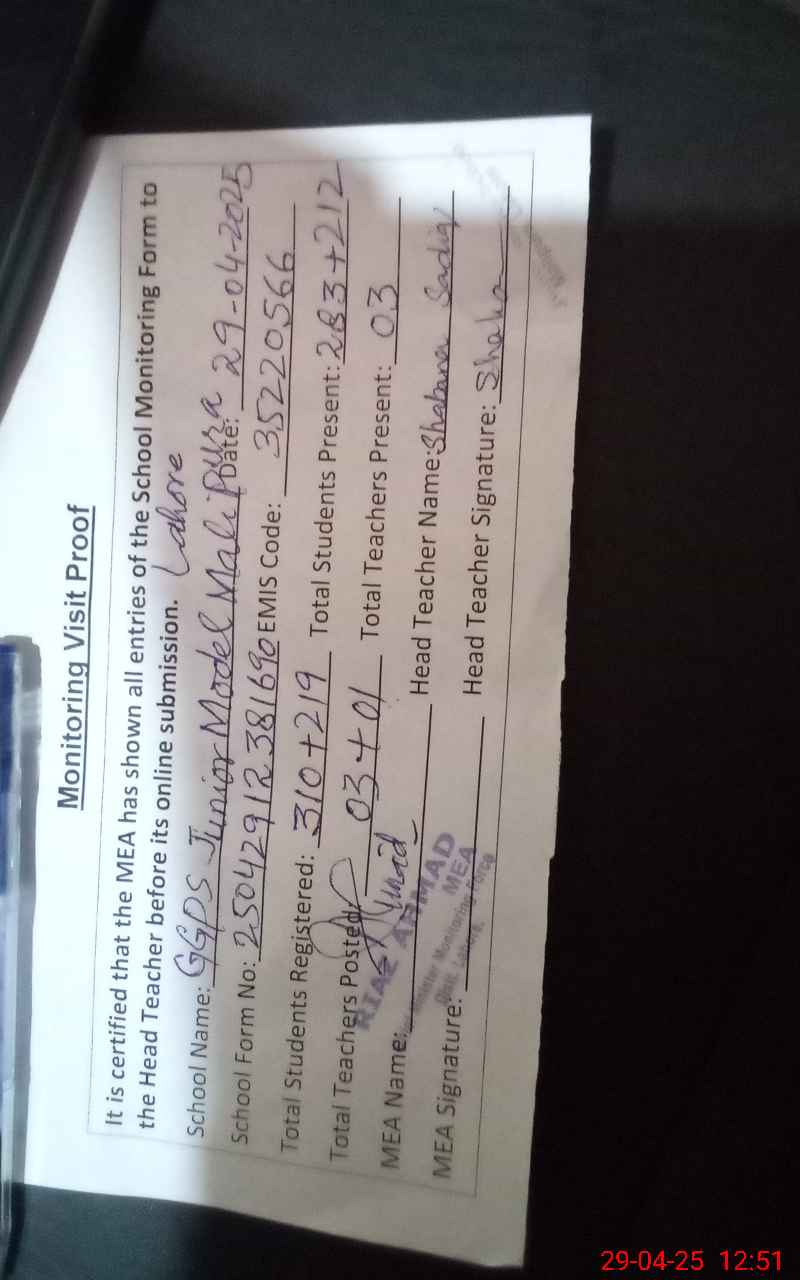 Monitoring Visit Proof
It is certified that the MEA has shown all entries of the School Monitoring Form to
the Head Teacher before its online submission. Lahore
School Name: GGPS Junior Model Malipura Date: 29-04-2025
School Form No: 2504291238 1690 EMIS Code: 35220566
Total Students Registered: 310+219 Total Students Present: 283+212
Total Teachers Posted: 03+01 Total Teachers Present: 03
MEA Name: Head Teacher Name: Shabana Sadiq
RIAZ AHMAD
MEA
Monitoring Force
Distt. Lahore.
MEA Signature: Head Teacher Signature: Shaba
29-04-25 12:51